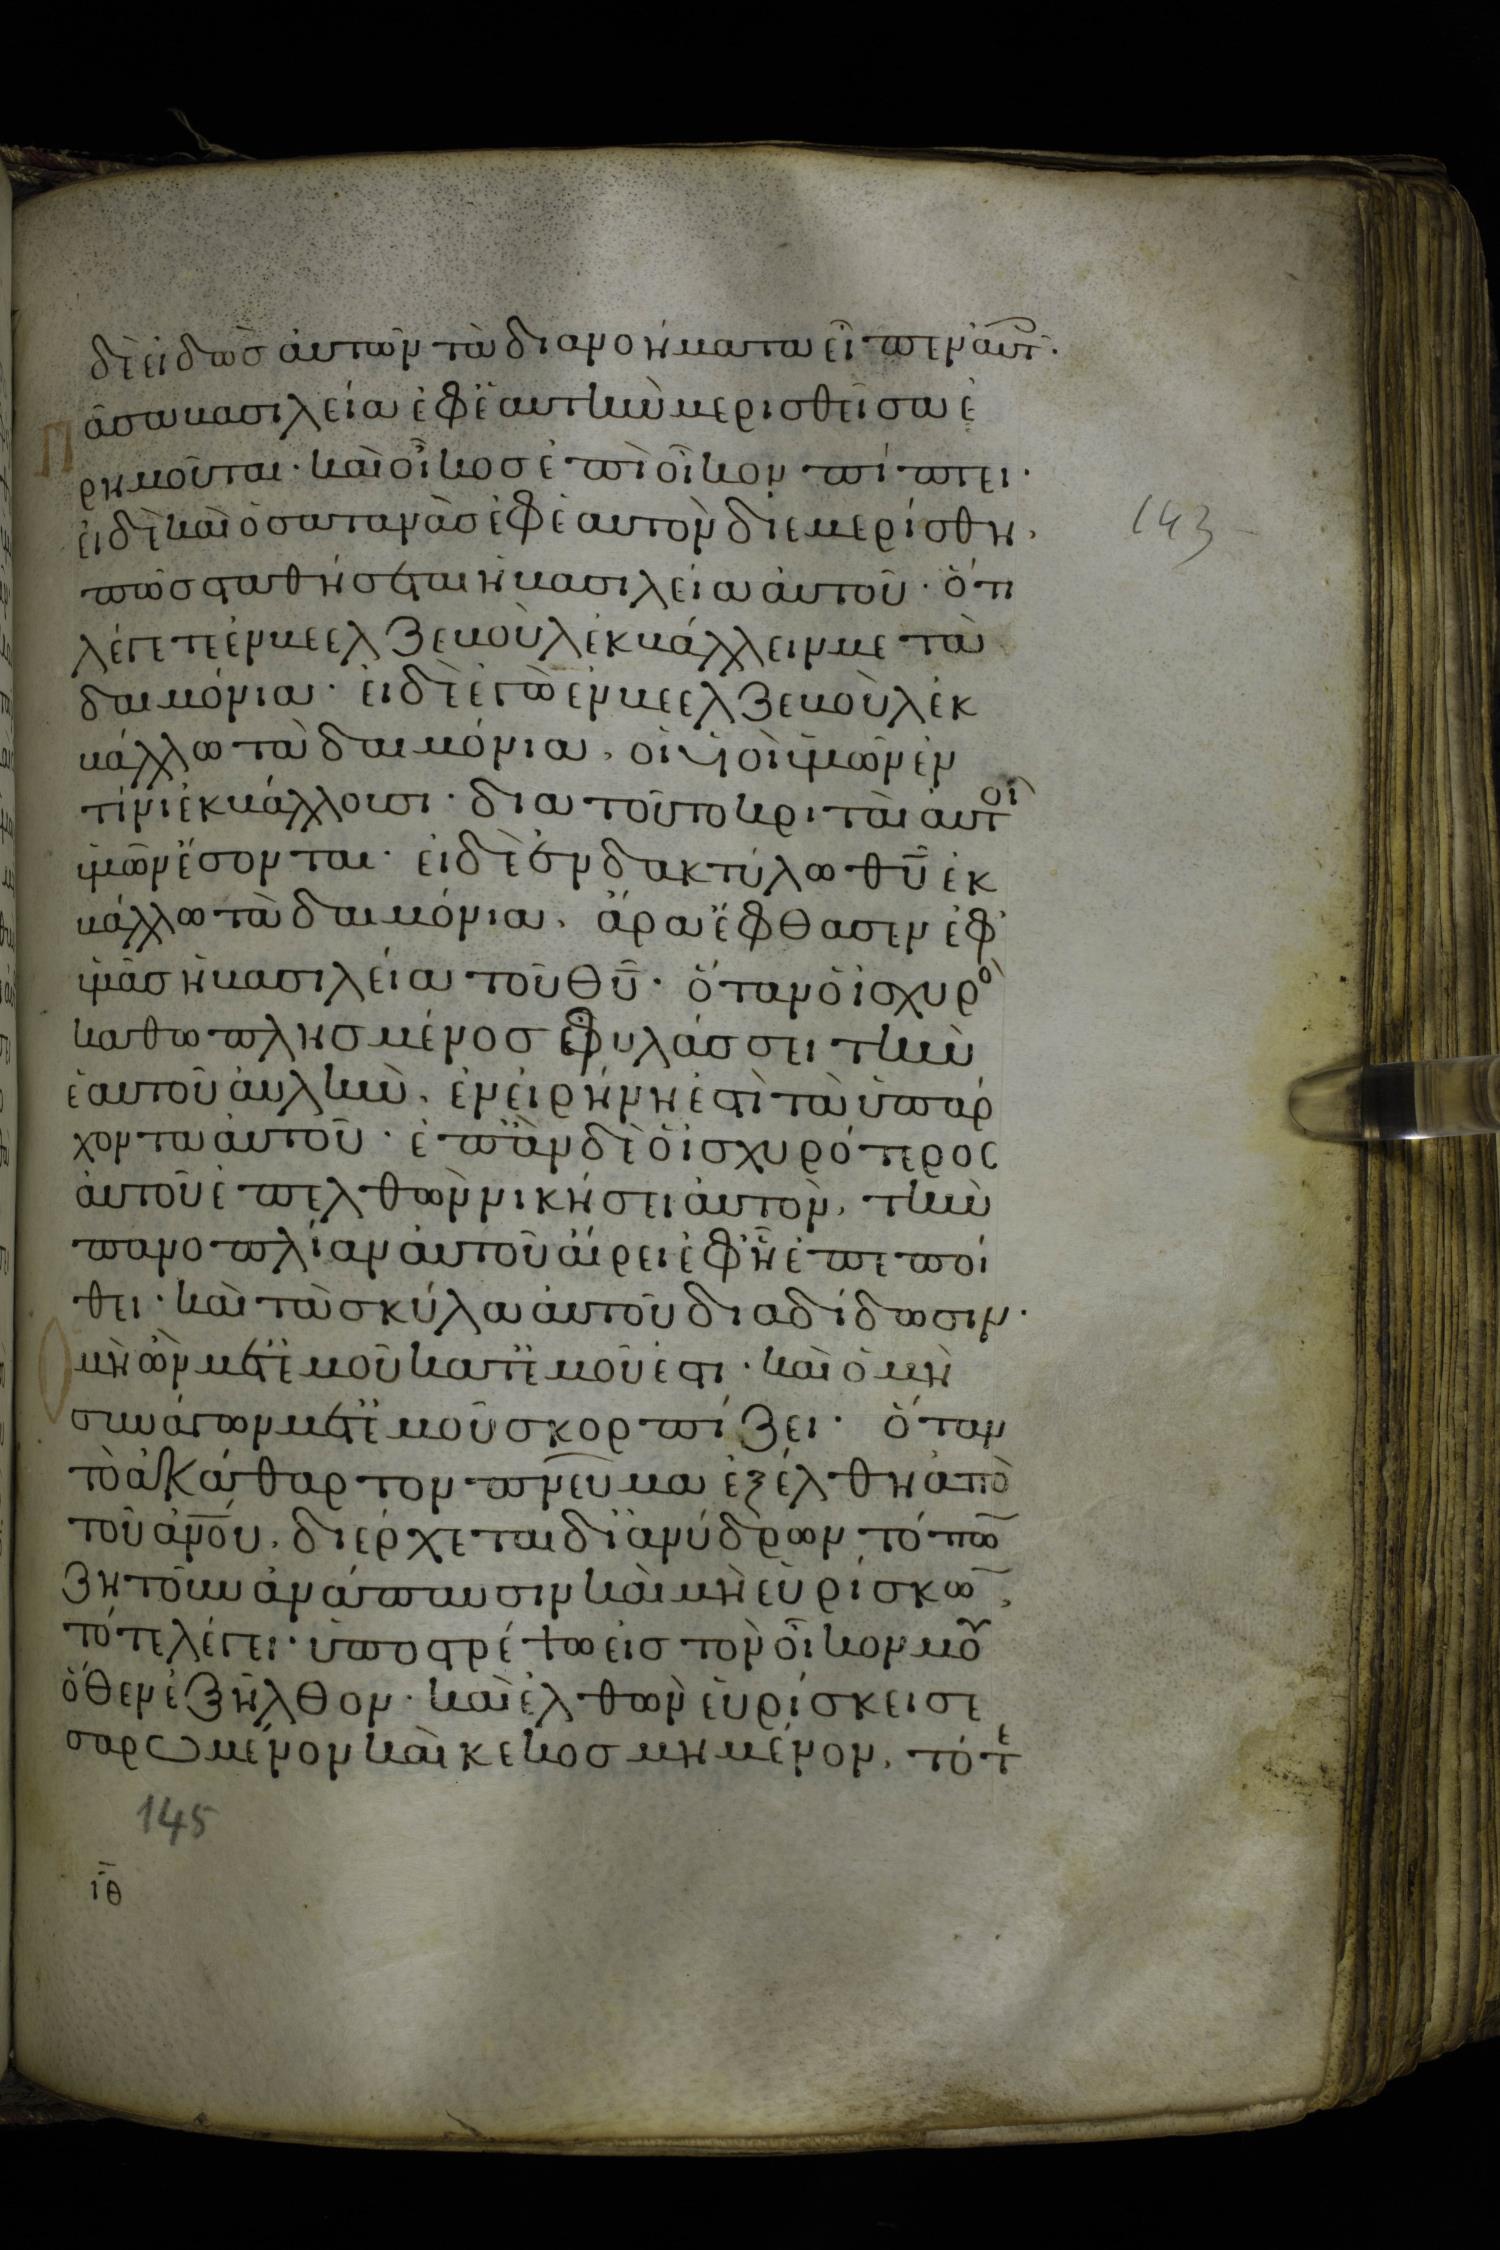 δὲ εἰδὼς αὐτῶν τὰ διανοήματα εἶπεν αὐτ·
Πᾶσα βασιλεία ἐφ' ἑαυτὴν μερισθεῖσα ἐ
ρημοῦται· καὶ οἶκος ἐπὶ οἶκον πίπτει·
εἰ δὲ καὶ ὁ σατανὰς ἐφ' ἑαυτὸν διεμερίσθη,
πῶς σταθήσεται ἡ βασιλεία αὐτοῦ· ὅτι
λέγετε ἐν βεελζεβοὺλ ἐκβάλλειν με τὰ
δαιμόνια· εἰ δὲ ἐγὼ ἐν βεελζεβοὺλ ἐκ
βάλλω τὰ δαιμόνια, οἱ υἱοὶ ὑμῶν ἐν
τίνι ἐκβάλλουσι· δια τοῦτο κριταὶ αὐτοὶ
ὑμῶν ἔσονται· εἰ δὲ ἐν δακτύλω θ̅υ̅ ἐκ
βάλλω τὰ δαιμόνια, ἄρα ἔφθασεν ἐφ'
ὑμᾶς ἡ βασιλεία τοῦ θ̅υ̅· ὅταν ὁ ἰσχυρὸ
καθωπλησμένος φυλάσσει τὴν
ἑαυτοῦ αὐλὴν, ἐν εἰρήνη ἐστὶ τὰ ὑπάρ
χοντα αὐτοῦ· ἐπὰν δὲ ὁ ἰσχυρότερος
αὐτοῦ ἐπελθὼν νικήσει αὐτὸν, τὴν
πανοπλίαν αὐτοῦ αἴρει ἐφ' ἧ ἐπεποί
θει· καὶ τὰ σκύλα αὐτοῦ διαδίδωσιν·
Ὁ μὴ ὢν μετ' ἐμοῦ κατ' ἐμοῦ ἐστι· καὶ ὁ μὴ
συνάγων μετ' ἐμοῦ σκορπίζει· ὅταν
τὸ ἀκάθαρτον πνεῦμα ἐξέλθη ἀπὸ
τοῦ ἀν̅ο̅υ, διέρχεται δι' ἀνύδρων τόπω̅
ζητοῦν ἀνάπαυσιν καὶ μὴ εὑρίσκω̅,
τότε λέγει· ὑποστρέψω εἰς τὸν οἶκον μου
ὅθεν ἐξῆλθον· καὶ ἐλθὼν εὑρίσκει σε
σαρωμένον καὶ κεκοσμημένον, τότε
143
145
ι̅θ̅